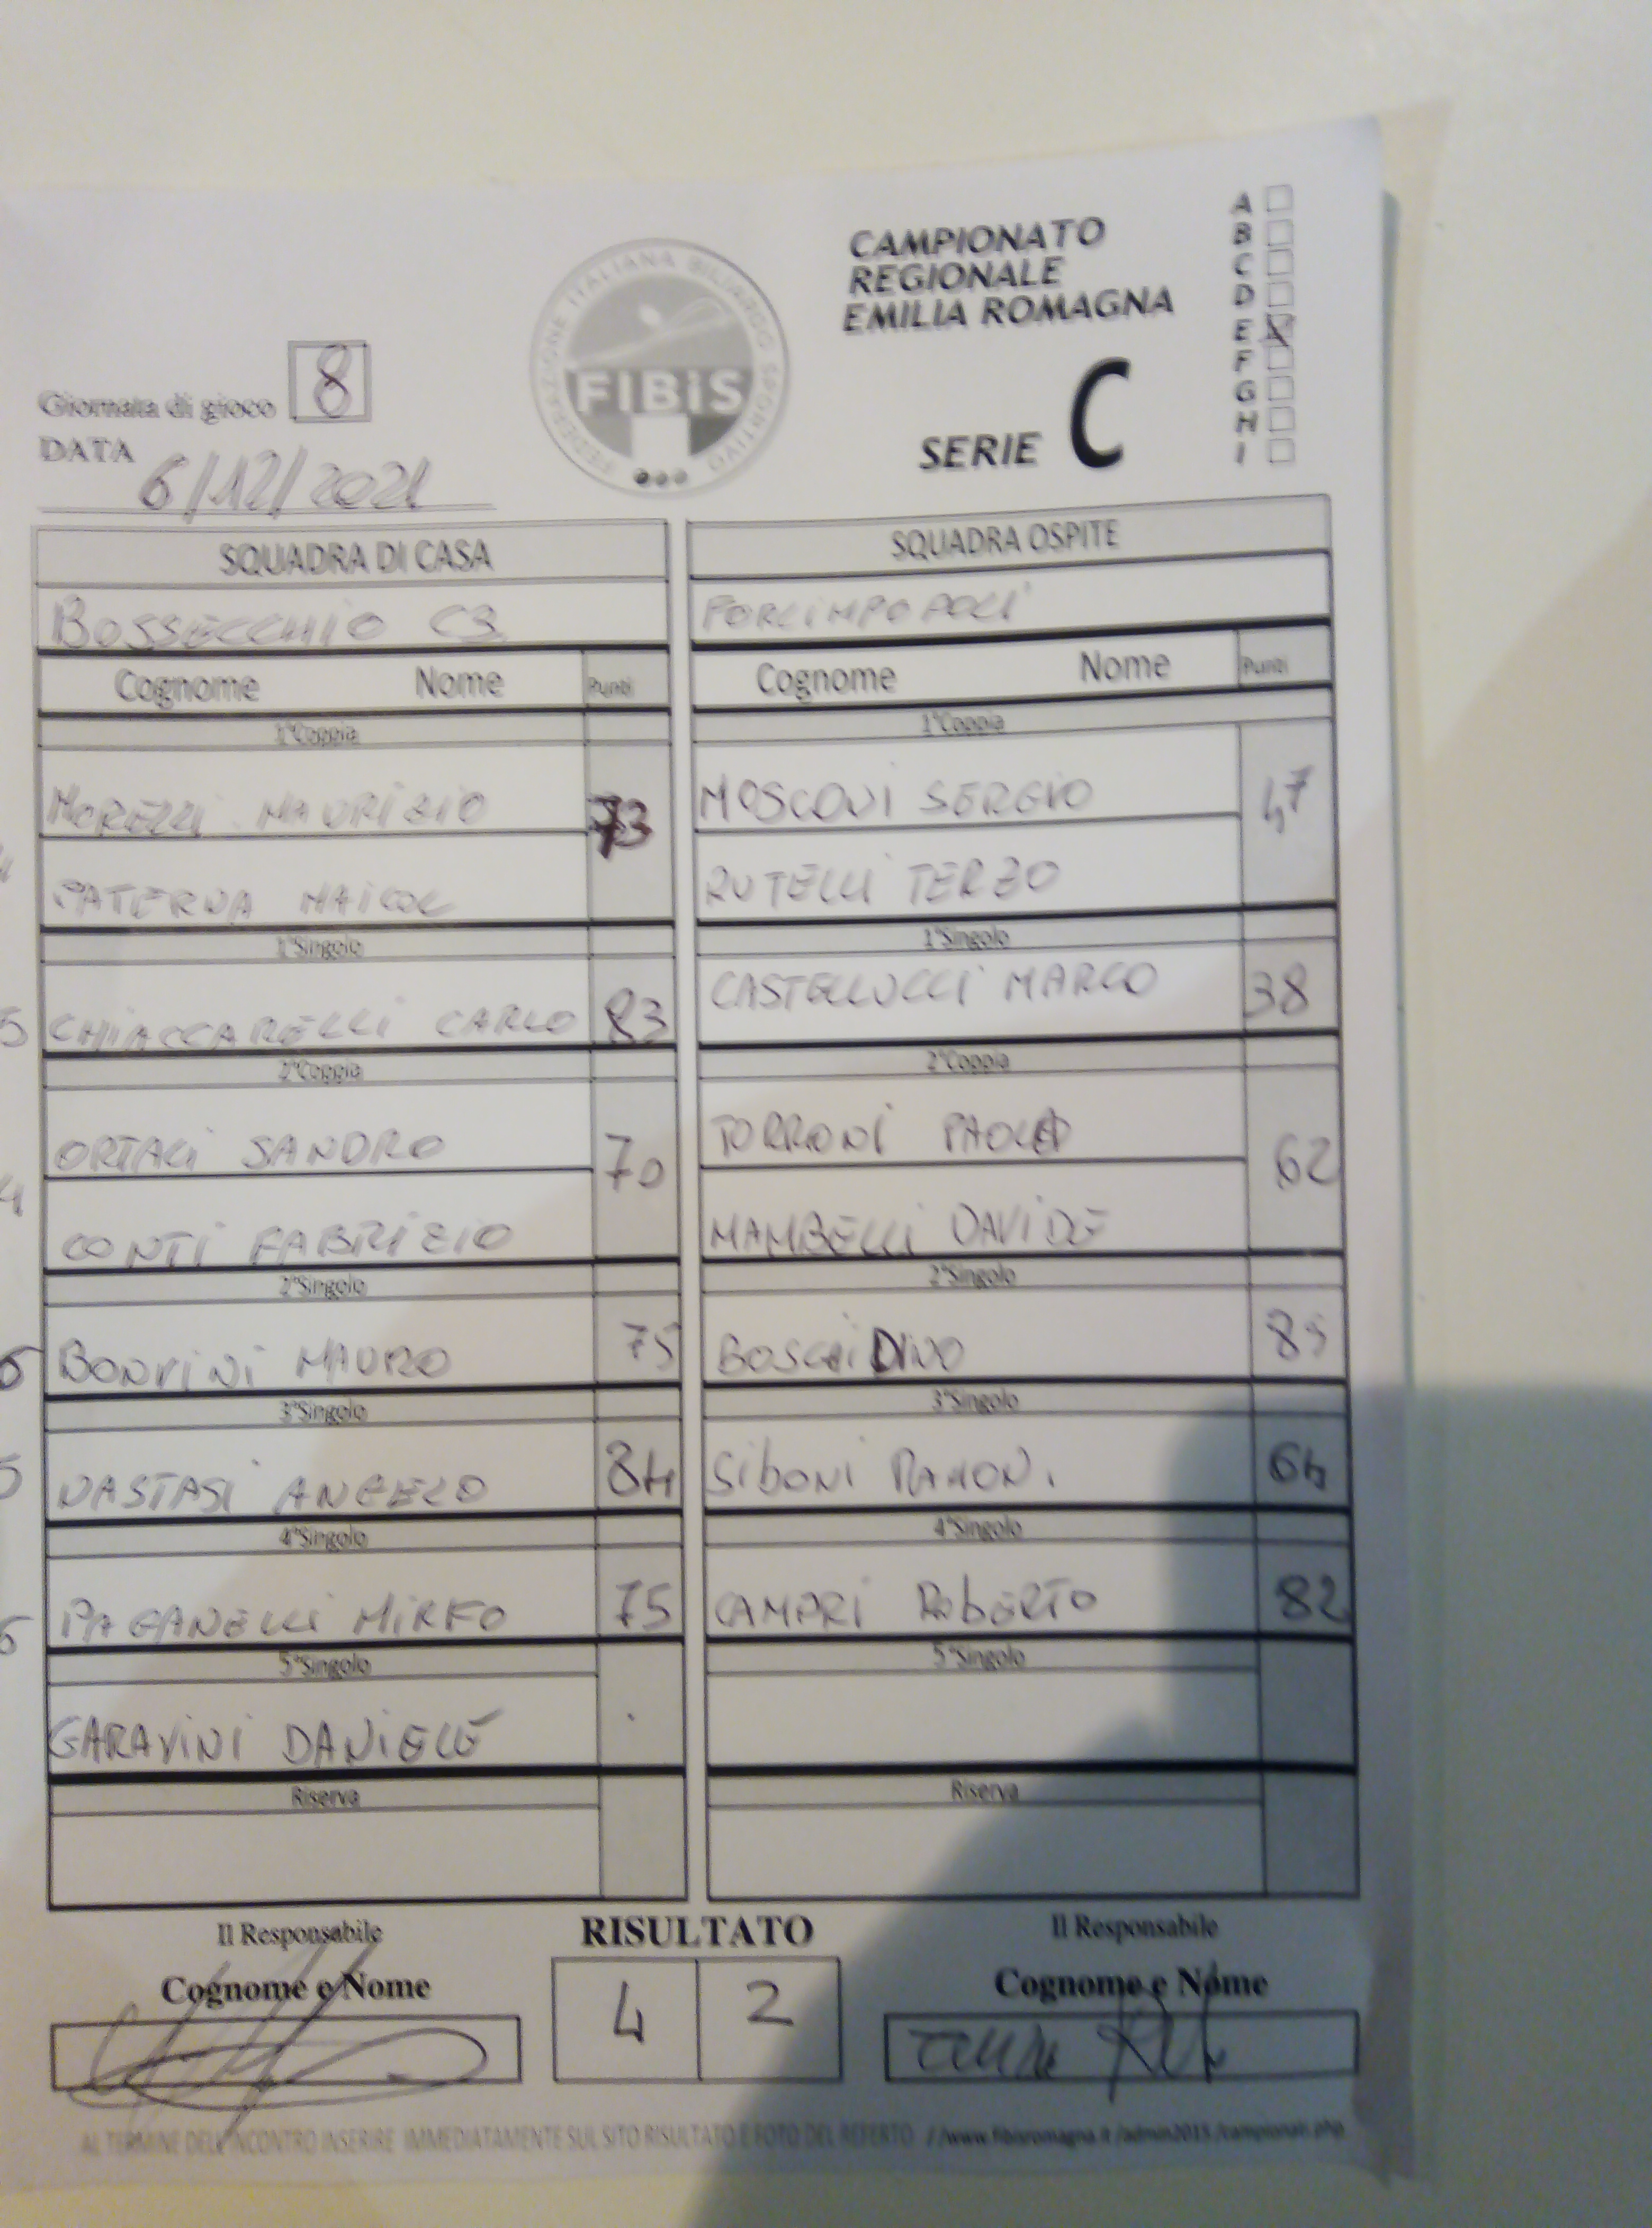 CAMPIONATO
REGIONALE
EMILIA ROMAGNA
SERIE C
A
B
C
D
E X
F
G
H
I
FEDERAZIONE ITALIANA BILIARDO SPORTIVO
FIBiS
Giornata di gioco 8
DATA
6/12/2021
SQUADRA DI CASA SQUADRA OSPITE
BOSSECCHIO C3 FORLIMPOPOLI
Cognome Nome Punti Cognome Nome Punti
1°Coppia 1°Coppia
MORELLI MAURIZIO 73 MOSCONI SERGIO 47
PATERNA MAICOL RUTELLI TERZO
1°Singolo 1°Singolo
CHIACCARELLI CARLO 83 CASTELLUCCI MARCO 38
2°Coppia 2°Coppia
ORTALI SANDRO 70 TORRONI 62
CONTI FABRIZIO MAMBELLI DAVIDE
2°Singolo 2°Singolo
BONVINI MAURO 75 DINO
3°Singolo 3°Singolo
NASTASI ANGELO 84 SIBONI RAMON. 64
4°Singolo 4°Singolo
PAGANELLI MIRKO 75 CAMPRI ROBERTO 82
5°Singolo 5°Singolo
GARAVINI DANIELE
Riserva Riserva
Il Responsabile RISULTATO Il Responsabile
Cognome e Nome Cognome e Nome
4 2
AL TERMINE DELL'INCONTRO INSERIRE IMMEDIATAMENTE SUL SITO RISULTATO E FOTO DEL REFERTO //www.fibisromagna.it /admin2015 /campionati.php